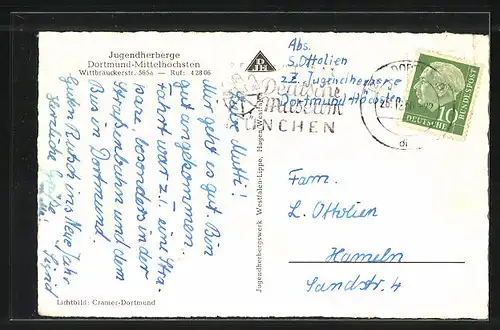 Jugendherberge
Dortmund-Mittelhöchsten
Wittbräuckerstr. 565a — Ruf: 42806
Liebe Mutti!
Mir geht es gut. Bin
gut angekommen.
Fahrt war z.T. eine Stra-
paze, besonders in der
Straßenbahn und dem
Bus in Dortmund.
Guten Rutsch ins Neue Jahr
Herzliche Grüße!
Sigrid
Lichtbild: Cramer-Dortmund
Jugendherbergswerk Westfalen-Lippe, Hagen/Westfalen
Abs.
S. Ottolien
z.Z. Jugendherberge
Dortmund Höchsten
Deutsches
Museum
MÜNCHEN
DEUTSCHE BUNDESPOST
10
Fam.
L. Ottolien
Hameln
Sandstr. 4